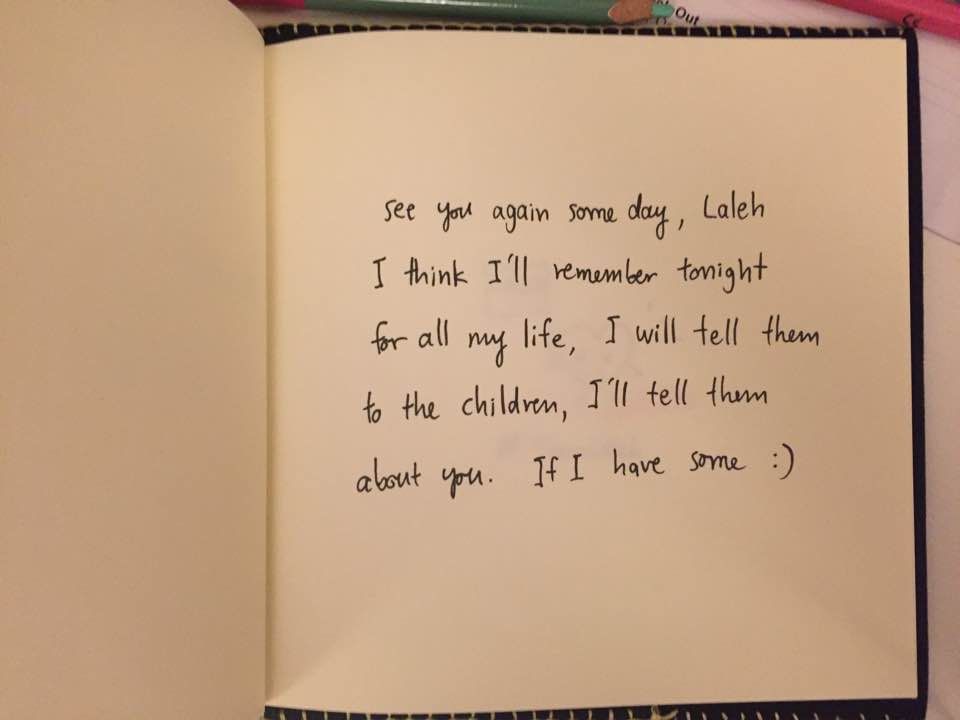 Out
see you again some day, Laleh
I think I'll remember tonight
for all my life, I will tell them
to the children, I'll tell them
about you. If I have some :)